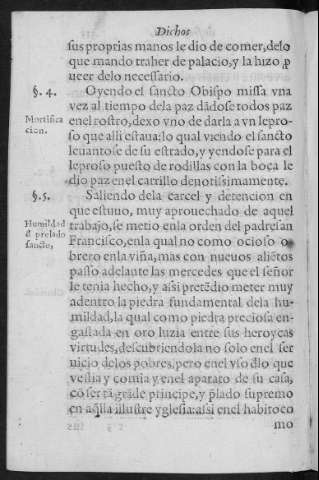 Dichos
sus proprias manos le dio de comer, delo
que mando traher de palacio, y la hizo ꝓ
ueer delo necessario.
§. 4.
Oyendo el sancto Obispo missa vna
vez al tiempo dela paz dādose todos paz
Mortifica
cion.
en el rostro, dexo vno de darla a vn lepro-
so que alli estaua: lo qual viendo el sancto
leuantose de su estrado, y yendose para el
leproso puesto de rodillas con la boca le
dio paz en el carrillo deuotissimamente.
§. 5.
Saliendo dela carcel y detencion en
que estuuo, muy aprouechado de aquel
Humildad
d prelado
sancto,
trabajo, se metio enla orden del padre san
Francisco, enla qual no como ocioso o-
brero enla viña, mas con nueuos aliētos
passo adelante las mercedes que el señor
le tenia hecho, y assi pretēdio meter muy
adentro la piedra fundamental dela hu-
mildad, la qual como piedra preciosa en-
gastada en oro luzia entre sus heroycas
virtudes, descubriendola no solo enel ser
uicio delos pobres, pero enel vso dlo que
vestia y comia y enel aparato de su casa,
cō ser tā grāde principe, y plado supremo
en aq̄lla illustre yglesia: assi enel habito co
mo